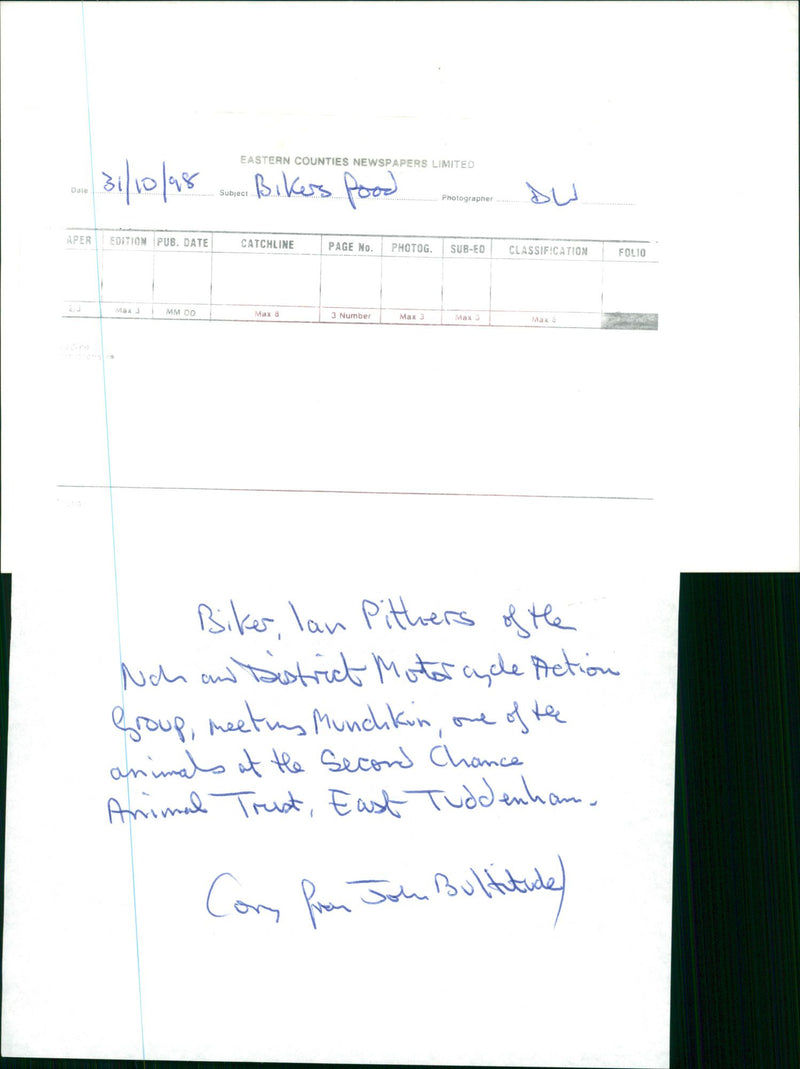 EASTERN COUNTIES NEWSPAPERS LIMITED
Date 31/10/98 Subject Bikers food Photographer DW
APER EDITION PUB. DATE CATCHLINE PAGE No. PHOTOG. SUB-ED CLASSIFICATION FOLIO
Max 3 MM DD Max 8 3 Number Max 3 Max 3 Max 8
Biker, Ian Pithers of the
Nch and District Motorcycle Action
Group, meeting Munchkin, one of the
animals at the Second Chance
Animal Trust, East Tuddenham.
(Copy from John Bultitude)